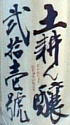 土耕ん醸
貮拾壱號